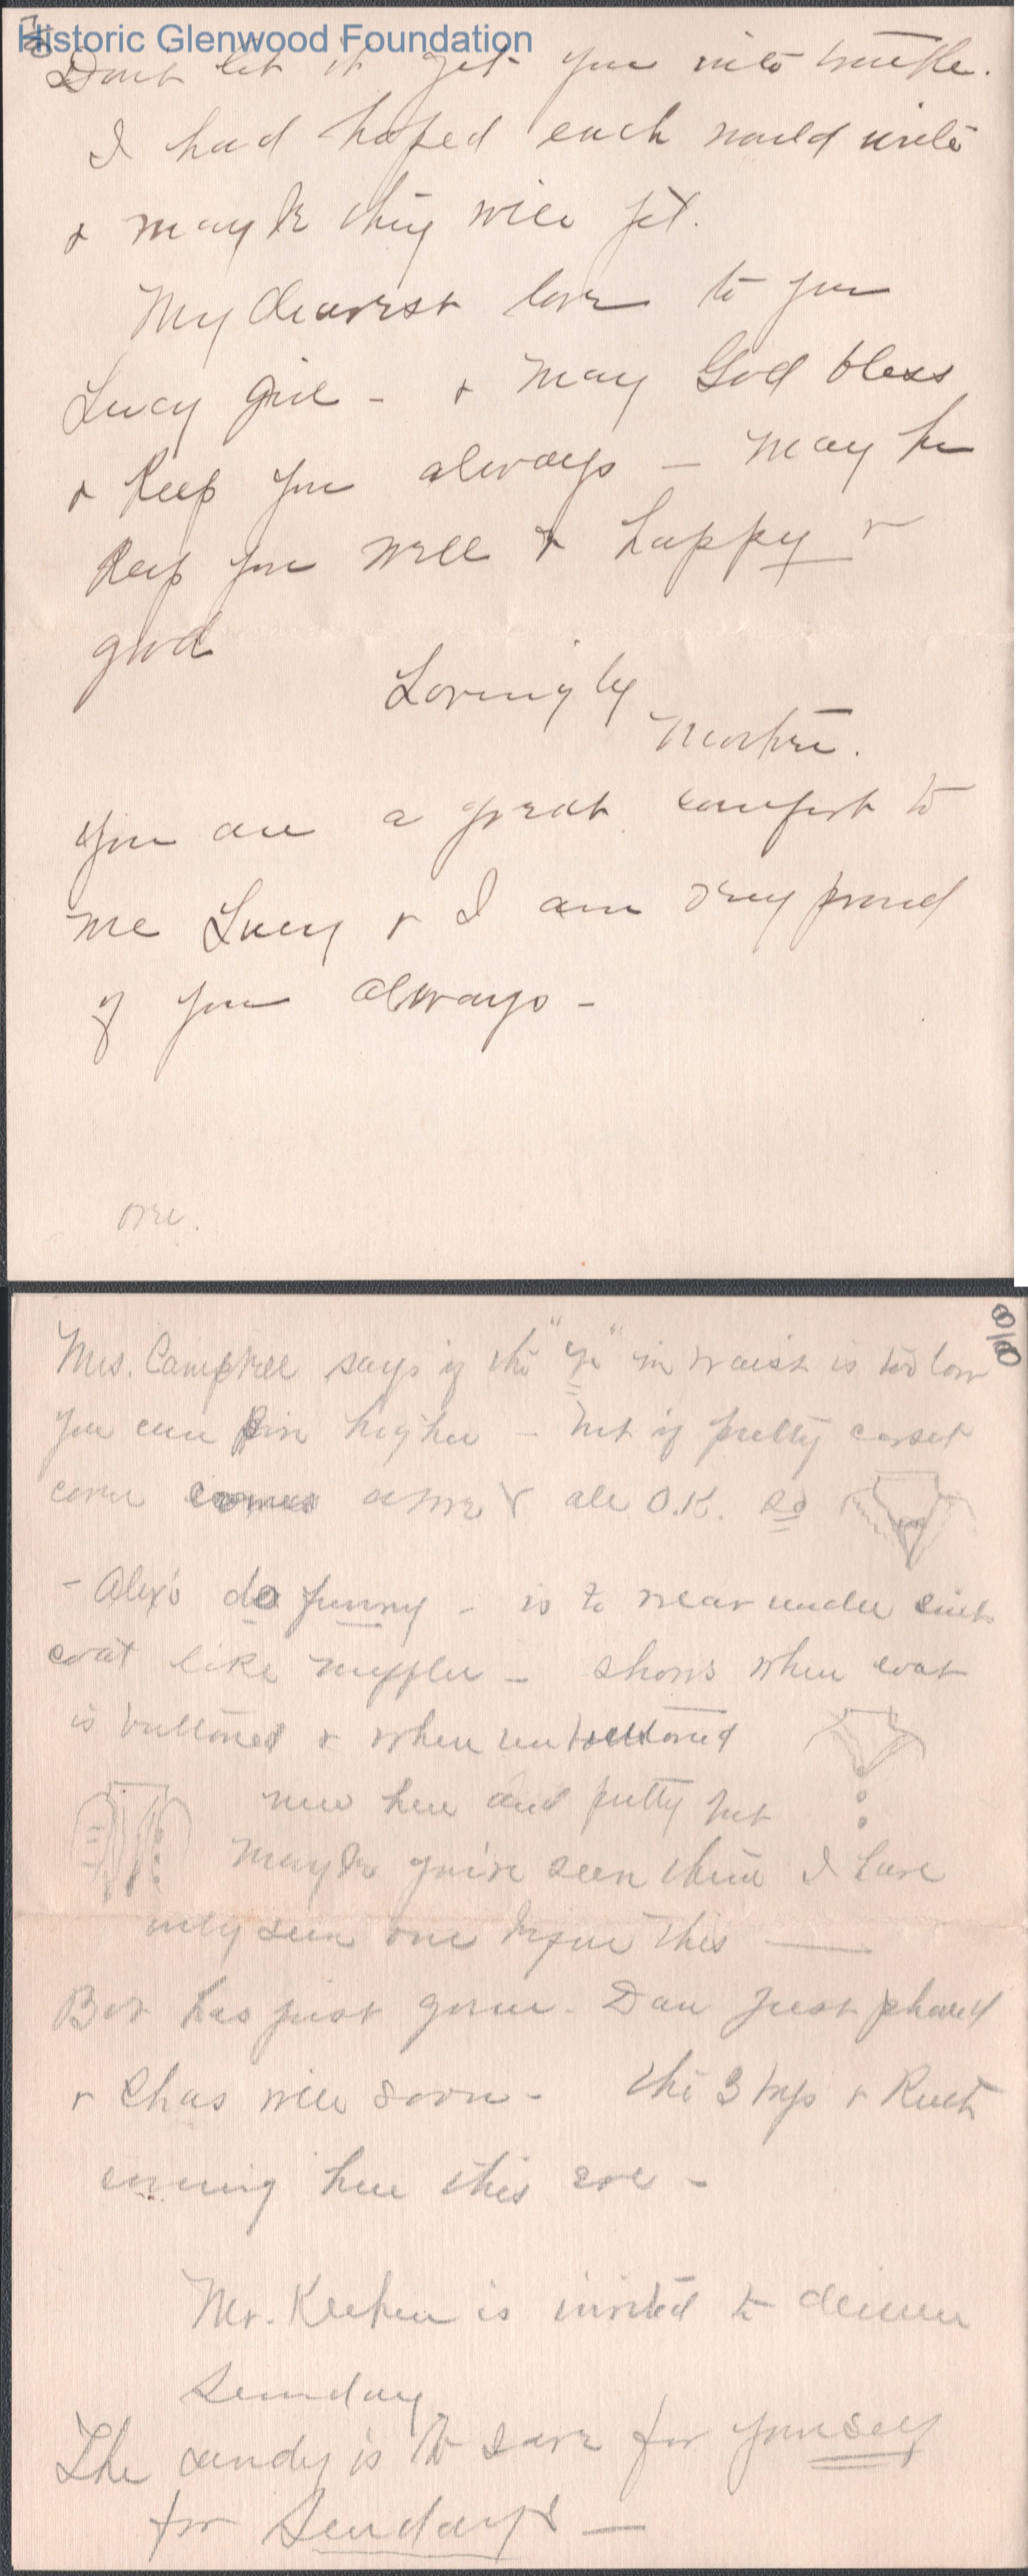 Historic Glenwood Foundation
Don't let it get you into trouble.
I had hoped each would write
& maybe they will yet.
My dearest love to you
Lucy girl - & may God bless
& keep you always - may he
keep you well & happy &
good
Lovingly
Mother.
You are a great comfort to
me Lucy & I am very proud
of you always -
over.
Mrs. Campbell says if the "V" in waist is too low
you can pin higher - but if pretty corset
cover comes above & all O.K. so
- Alex's do funny - is to wear under suit
coat like muffler - shows when coat
is buttoned & when unbuttoned
new here and pretty but
maybe you've seen them I have
only seen one before this
Bob has just gone. Dan just phoned
& Chas will soon - the 3 boys & Ruth
coming here this eve -
Mr. is invited to dinner
Sunday
The candy is to save for yourself
for Sundays -